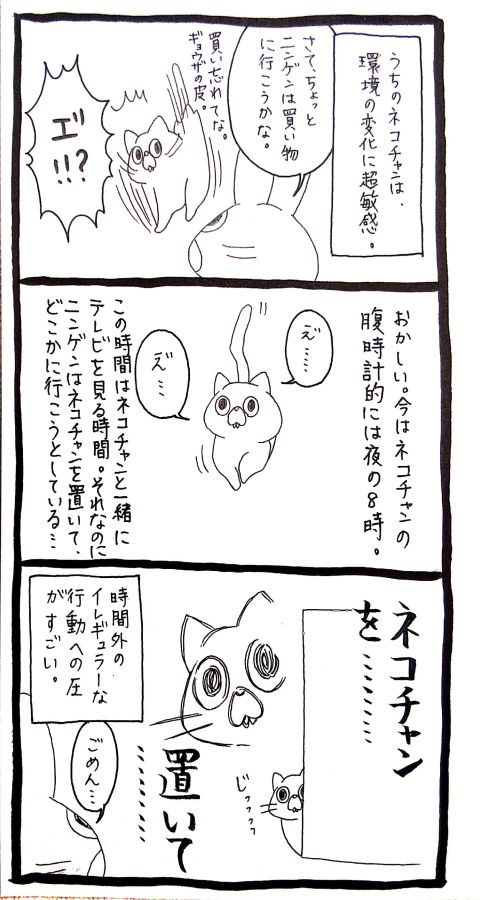 うちのネコチャンは、
環境の変化に超敏感。
さて、ちょっと
ニンゲンは買い物
に行こうかな。
買い忘れてな。
ギョウザの皮。
エ゛
!!?
おかしい。今はネコチャンの
腹時計的には夜の8時。
え゛……
え゛…
この時間はネコチャンと一緒に
テレビを見る時間。それなのに
ニンゲンはネコチャンを置いて、
どこかに行こうとしている…
ネコチャン
を………
置いて
………
じっっっっ
時間外の
イレギュラーな
行動への圧
がすごい。
ごめん…